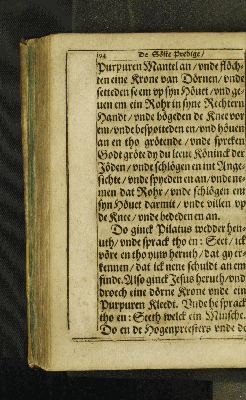 194 De Söste Predige/
Purpuren Mantel an / vnde flöch-
ten eine Krone van Dörnen / vnde
setteden se em vp syn Höuet / vnd ge-
uen em ein Rohr in syne Rechtern
Handt / vnde bögeden de Knee vor
em / vnde bespotteden en / vnd höuen
an en tho grötende / vnde spreken:
Godt gröte dy du leeue Köninck der
Jöden / vnde schlögen en int Ange-
sichte / vnde spyeden en an / vnde ne-
men dat Rohr / vnde schlögen em
syn Höuet darmit / vnde villen vp
de Knee / vnde bededen en an.
Do ginck Pilatus wedder hen-
uth / vnde sprack tho en: Seet / ick
vöre en tho yuw heruth / dat gy er-
kennen / dat ick nene schuldt an em
finde. Also ginck Jesus heruth / vnd
droech eine dörne Krone vnde ein
Purpuren Kleedt. Vnde he sprack
tho en: Seeth welck ein Minsche.
Do en de Hogenpreesters vnde de